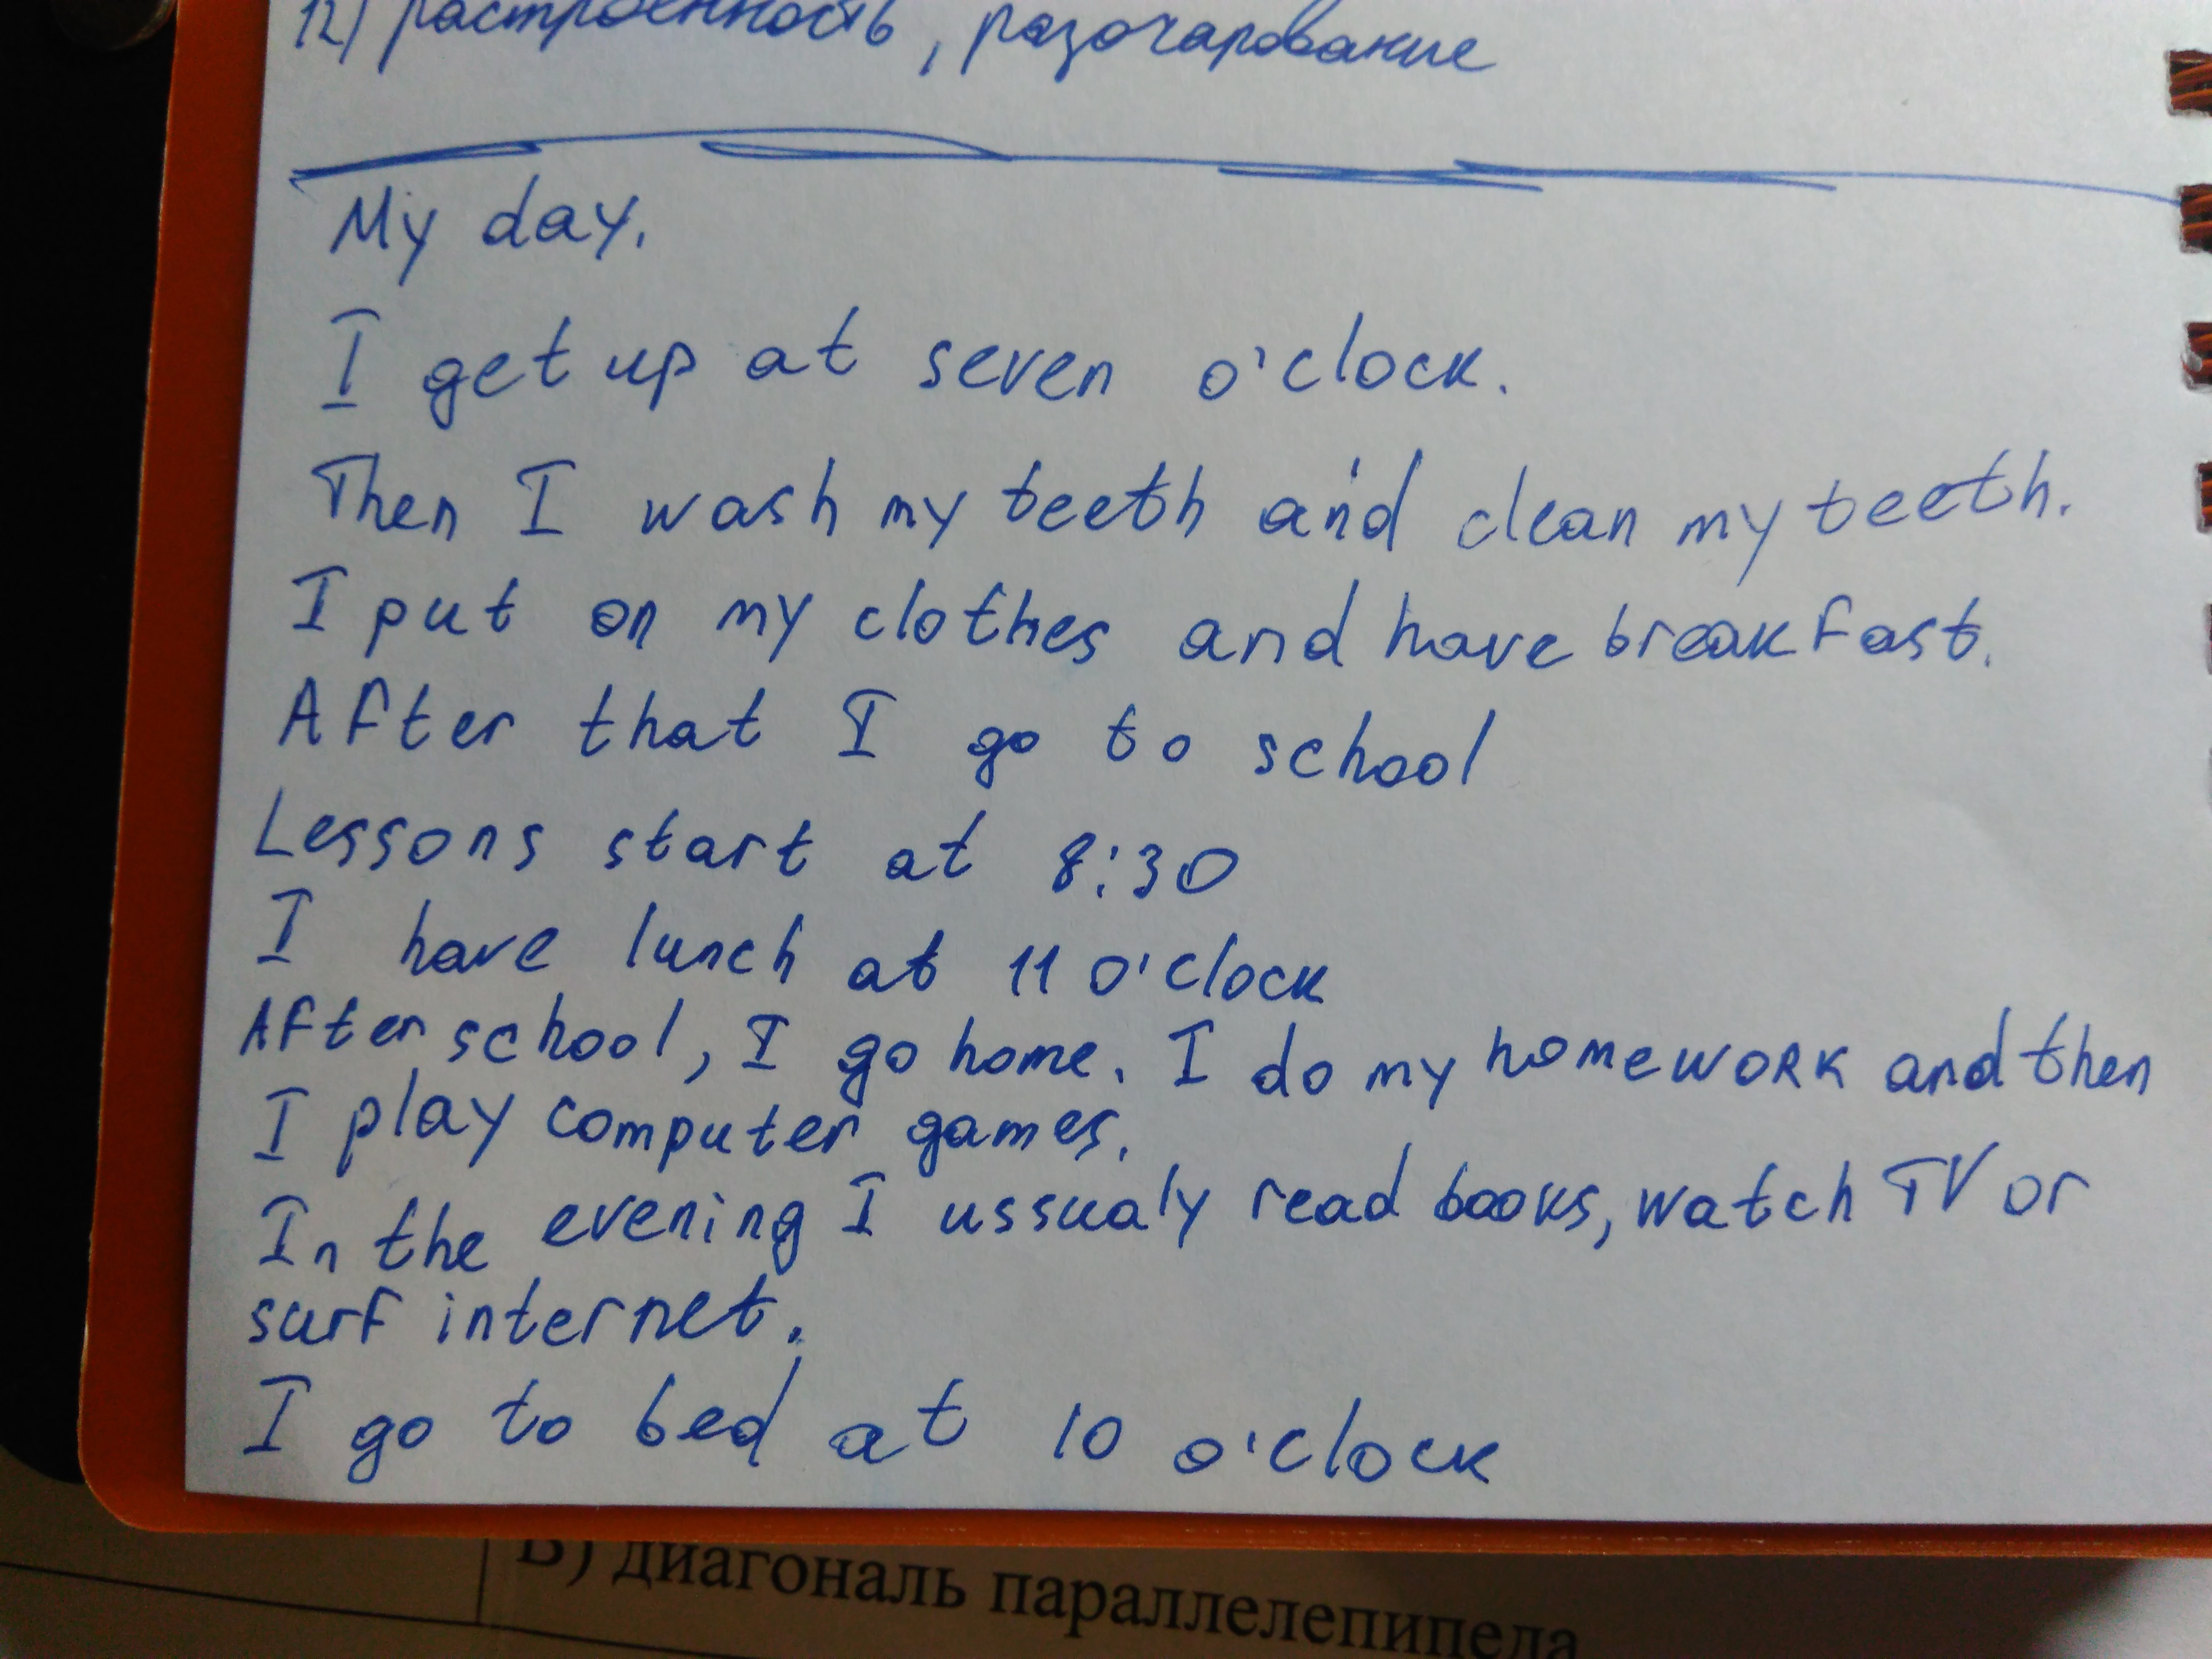 12) растроенность, разочарование
My day.
I get up at seven o'clock.
Then I wash my teeth and clean my teeth.
I put on my clothes and have breakfast.
After that I go to school
Lessons start at 8:30
I have lunch at 11 o'clock
After school, I go home. I do my homework and then
I play computer games.
In the evening I ussualy read books, watch TV or
surf internet.
I go to bed at 10 o'clock
В) диагональ параллелепипеда